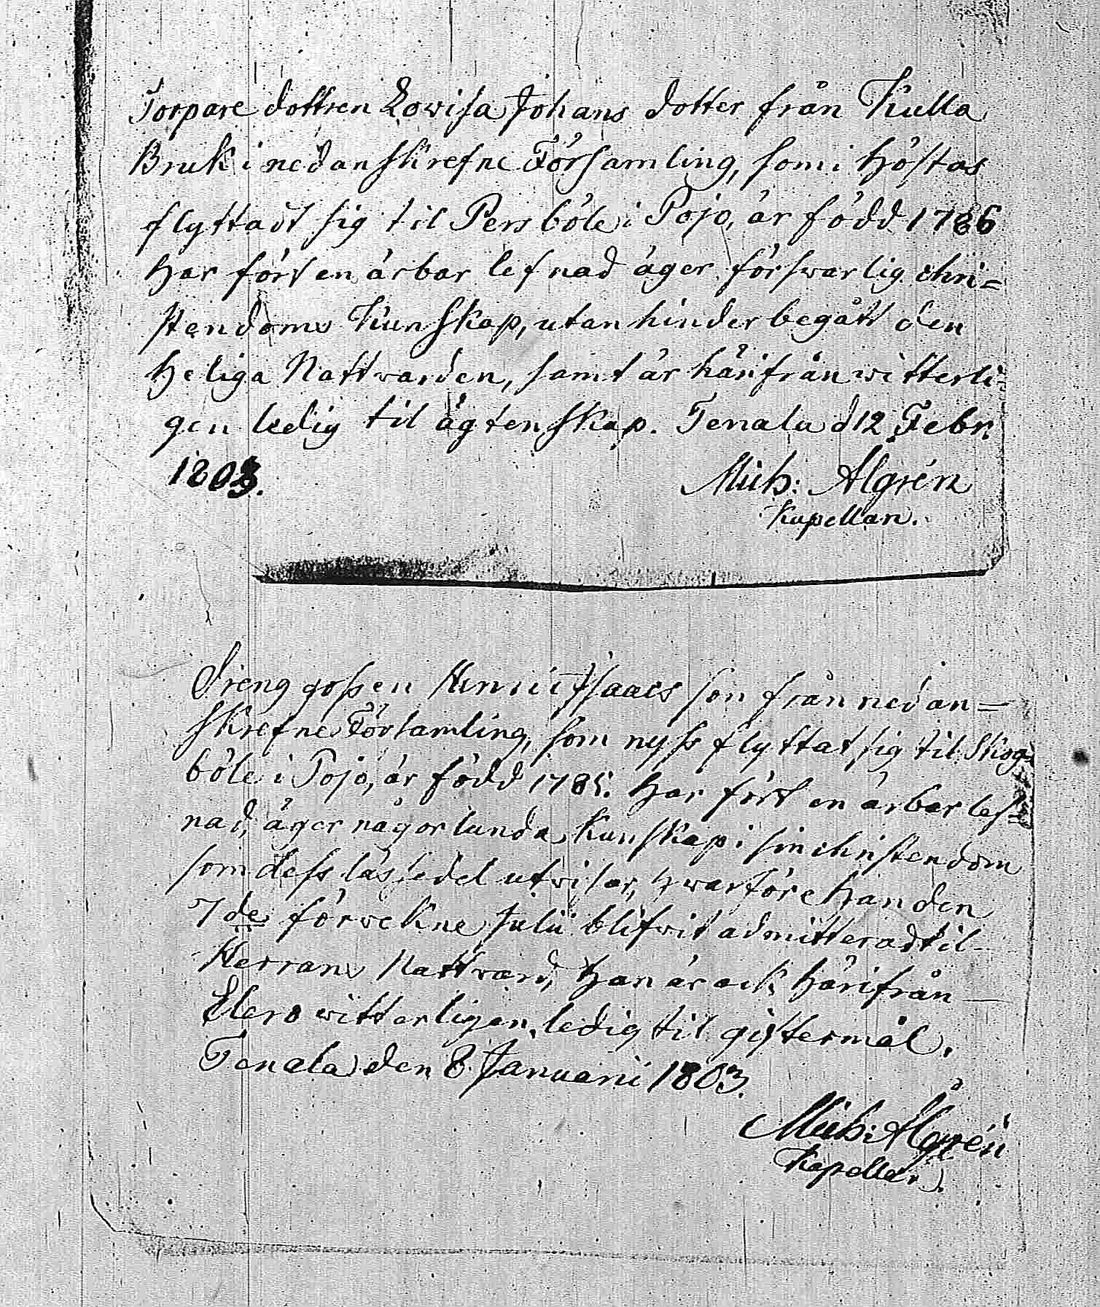 Torpare dottren Lowisa Johans dotter från Kulla
Bruk i nedanskrefne Församling, som i höstas
flyttadt sig til Persböle i Pojo, är född 1786
har fört en ärbar lefnad äger förswarlig chri=
stendoms Kunskap, utan hinder begått den
Heliga Nattwarden, samt är härifrån witterli
gen ledig til ägtenskap. Tenala d 12 Febr.
1803.
Mich: Algrén
Kapellan.
Drenggossen Henric Isaacs son från nedan=
skrefne Församling, som nyss flyttat sig til Skog
böle i Pojo, är född 1785. har fört en ärbar lef=
nad, äger någorlunda Kunskap i sin christendom
som dess läs sedel utwisar, hwarföre han den
7de förwekne Julii blifwit admitterad til
Herrans Nattward, han är ock härifrån
Elers witterligen ledig til giftermål.
Tenala den 8 Januarii 1803.
Mich: Algrén
Kapellan.